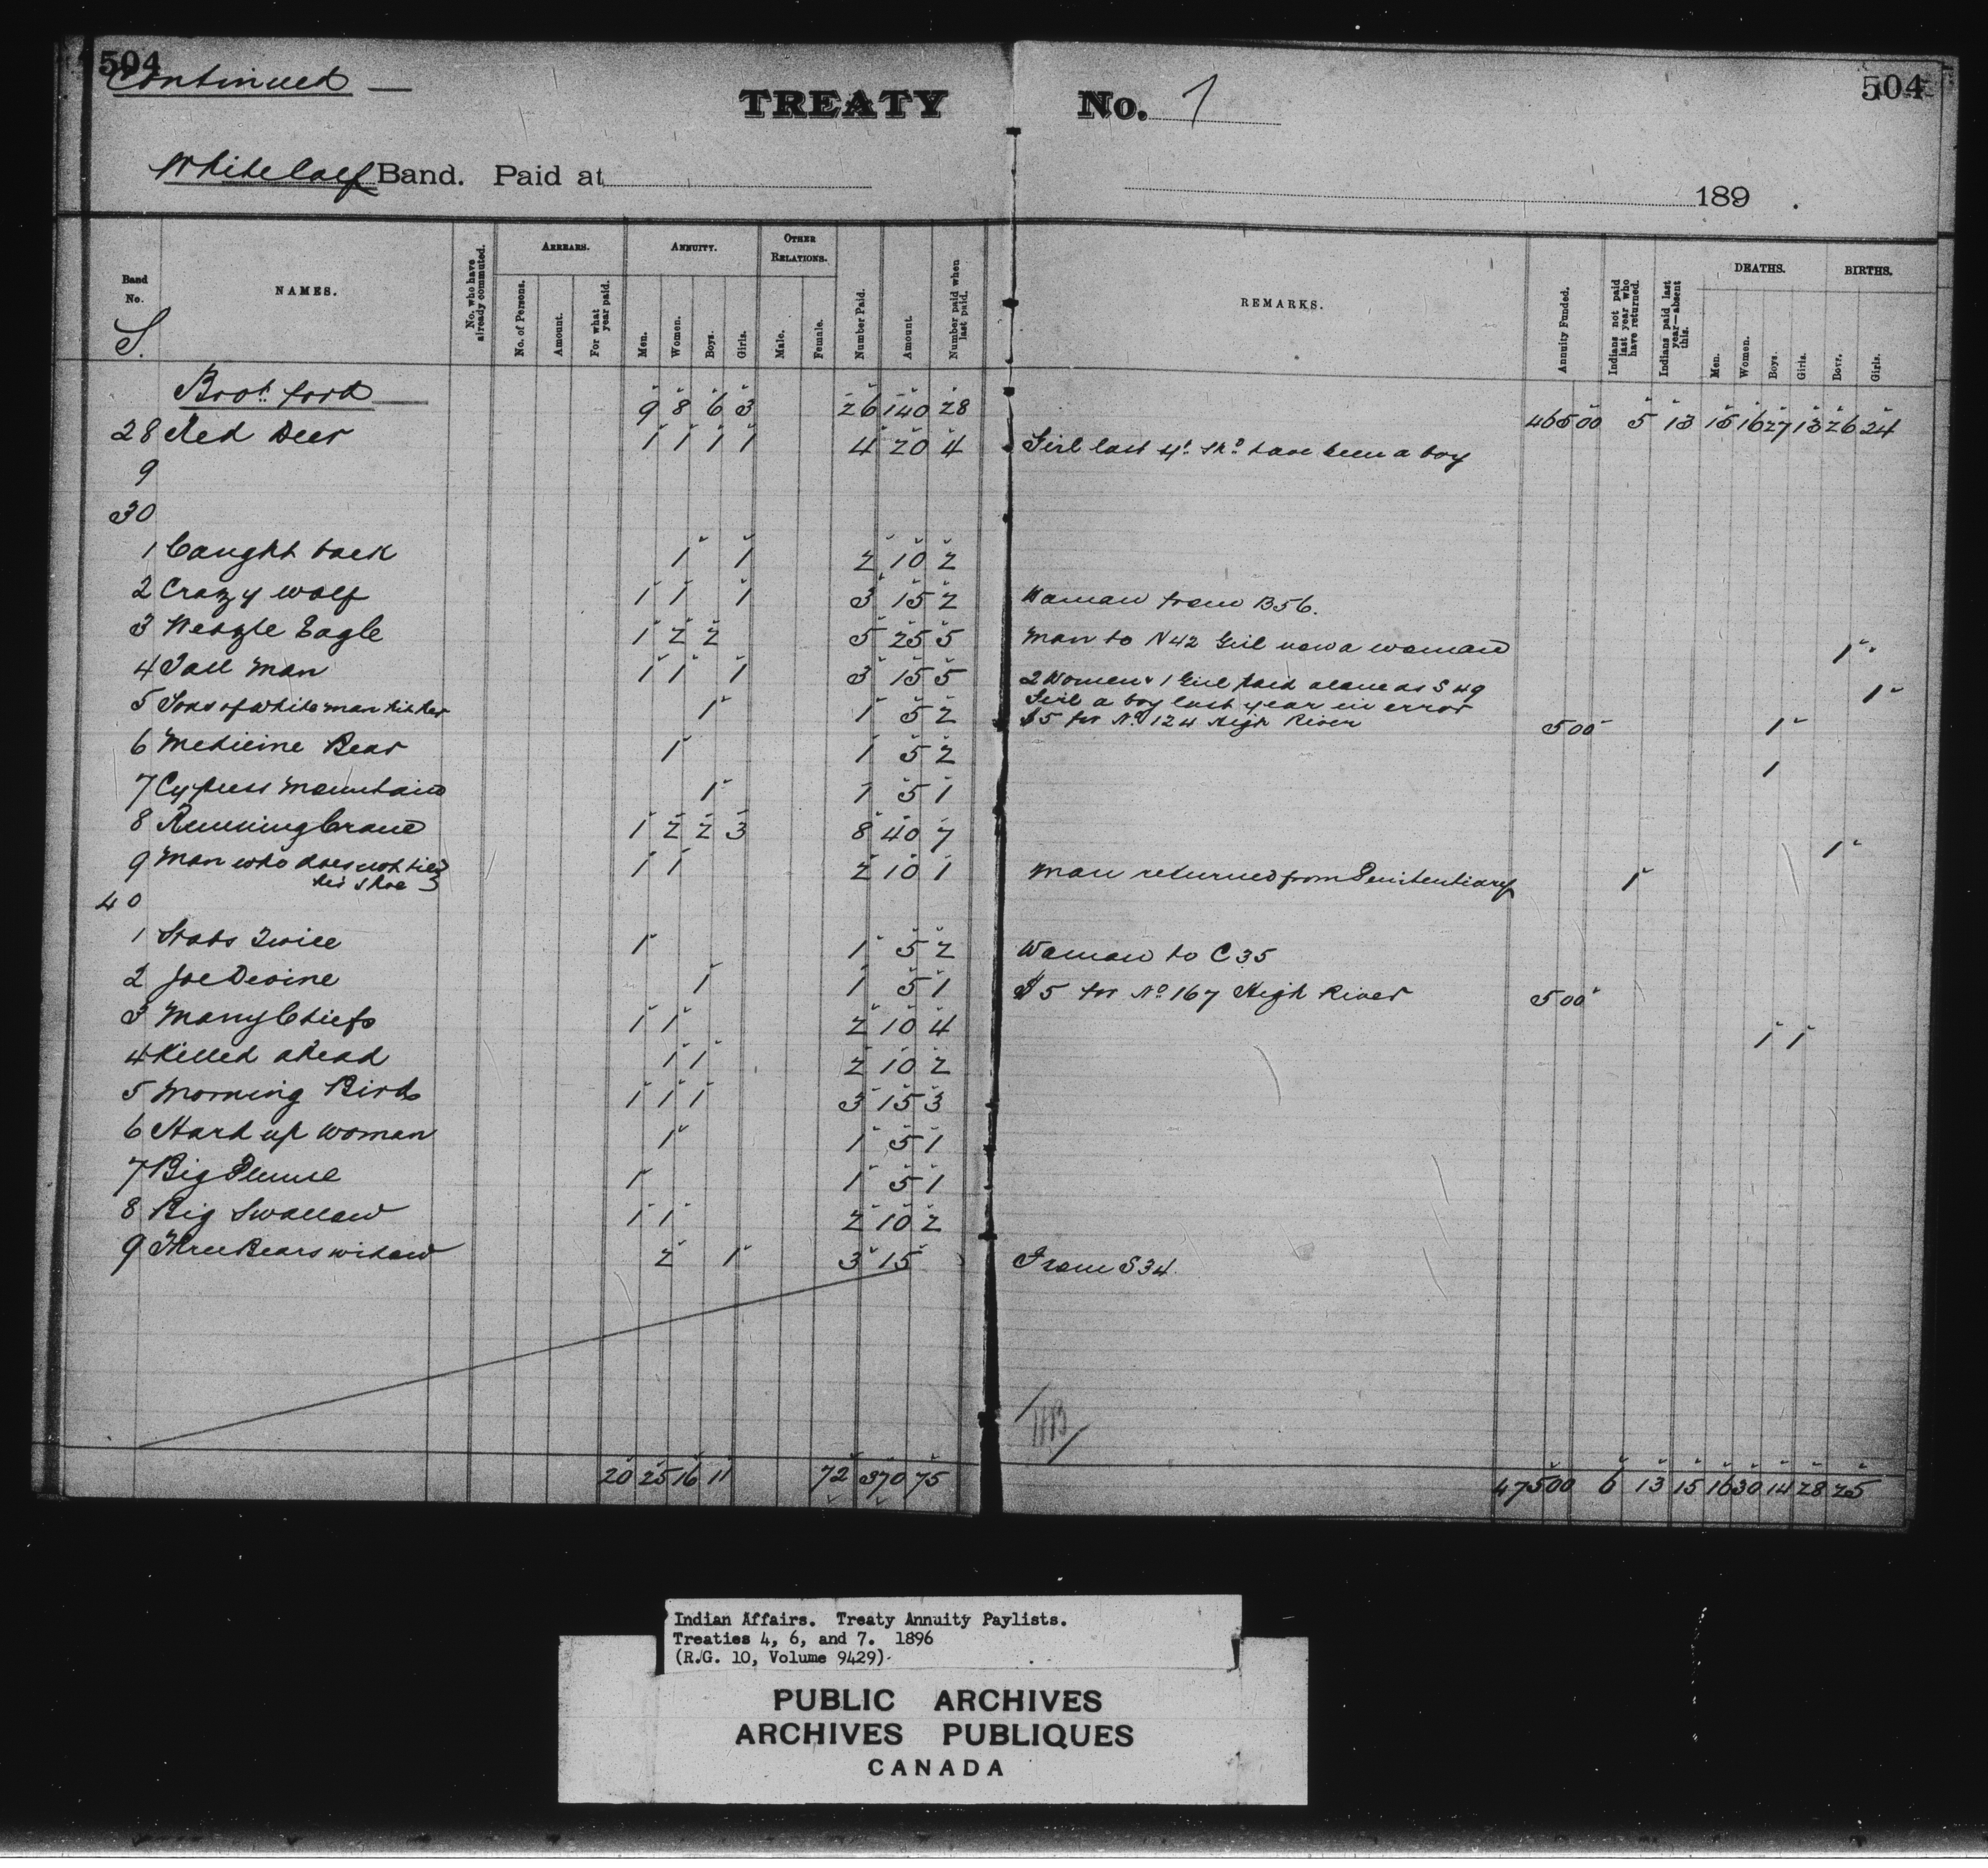 504 504
Continued —
TREATY No. 7
White Calf Band. Paid at 189 .
Band No. NAMES. No. who have already commuted. ARREARS. No. of Persons. Amount. For what year paid. ANNUITY. Men. Women. Boys. Girls. OTHER RELATIONS. Male. Female. Number Paid. Amount. Number paid when last paid. REMARKS. Annuity Funded. Indians not paid last year who have returned. Indians paid last year—absent this. DEATHS. Men. Women. Boys. Girls. BIRTHS. Boys. Girls.
S.
Brot. ford — 9 8 6 3 26 140 28 465 00 5 13 15 16 27 13 26 24
28 Red Deer 1 1 1 1 4 20 4 Girl last yr. shd. have been a boy
9
30
1 Caught back 1 1 2 10 2
2 Crazy wolf 1 1 1 3 15 2 Woman from B56.
3 Weazle Eagle 1 2 2 5 25 5 Man to N42 Girl now a woman 1
4 Tall Man 1 1 1 3 15 5 2 Women & 1 Girl paid alone as S49 1
Girl a boy last year in error
5 Sons of white man hit her 1 1 5 2 $5 for No 124 High River 5 00 1
6 Medicine Bear 1 1 5 2 1
7 Cypress Mountain 1 1 5 1
8 Running Crane 1 2 2 3 8 40 7 1
9 Man who does not tie his shoe 1 1 2 10 1 Man returned from Penitentiary 1
40
1 Stabs Twice 1 1 5 2 Woman to C35
2 Joe Devine 1 1 5 1 $5 for No 167 High River 5 00
3 Many Chiefs 1 1 2 10 4 1 1
4 Killed ahead 1 1 2 10 2
5 Morning Bird 1 1 1 3 15 3
6 Hard up woman 1 1 5 1
7 Big Plume 1 1 5 1
8 Big Swallow 1 1 2 10 2
9 Three Bears widow 2 1 3 15 From S34.
20 25 16 11 72 370 75 475 00 6 13 15 16 30 14 28 25
Indian Affairs. Treaty Annuity Paylists.
Treaties 4, 6, and 7. 1896
(R.G. 10, Volume 9429)
PUBLIC ARCHIVES
ARCHIVES PUBLIQUES
CANADA